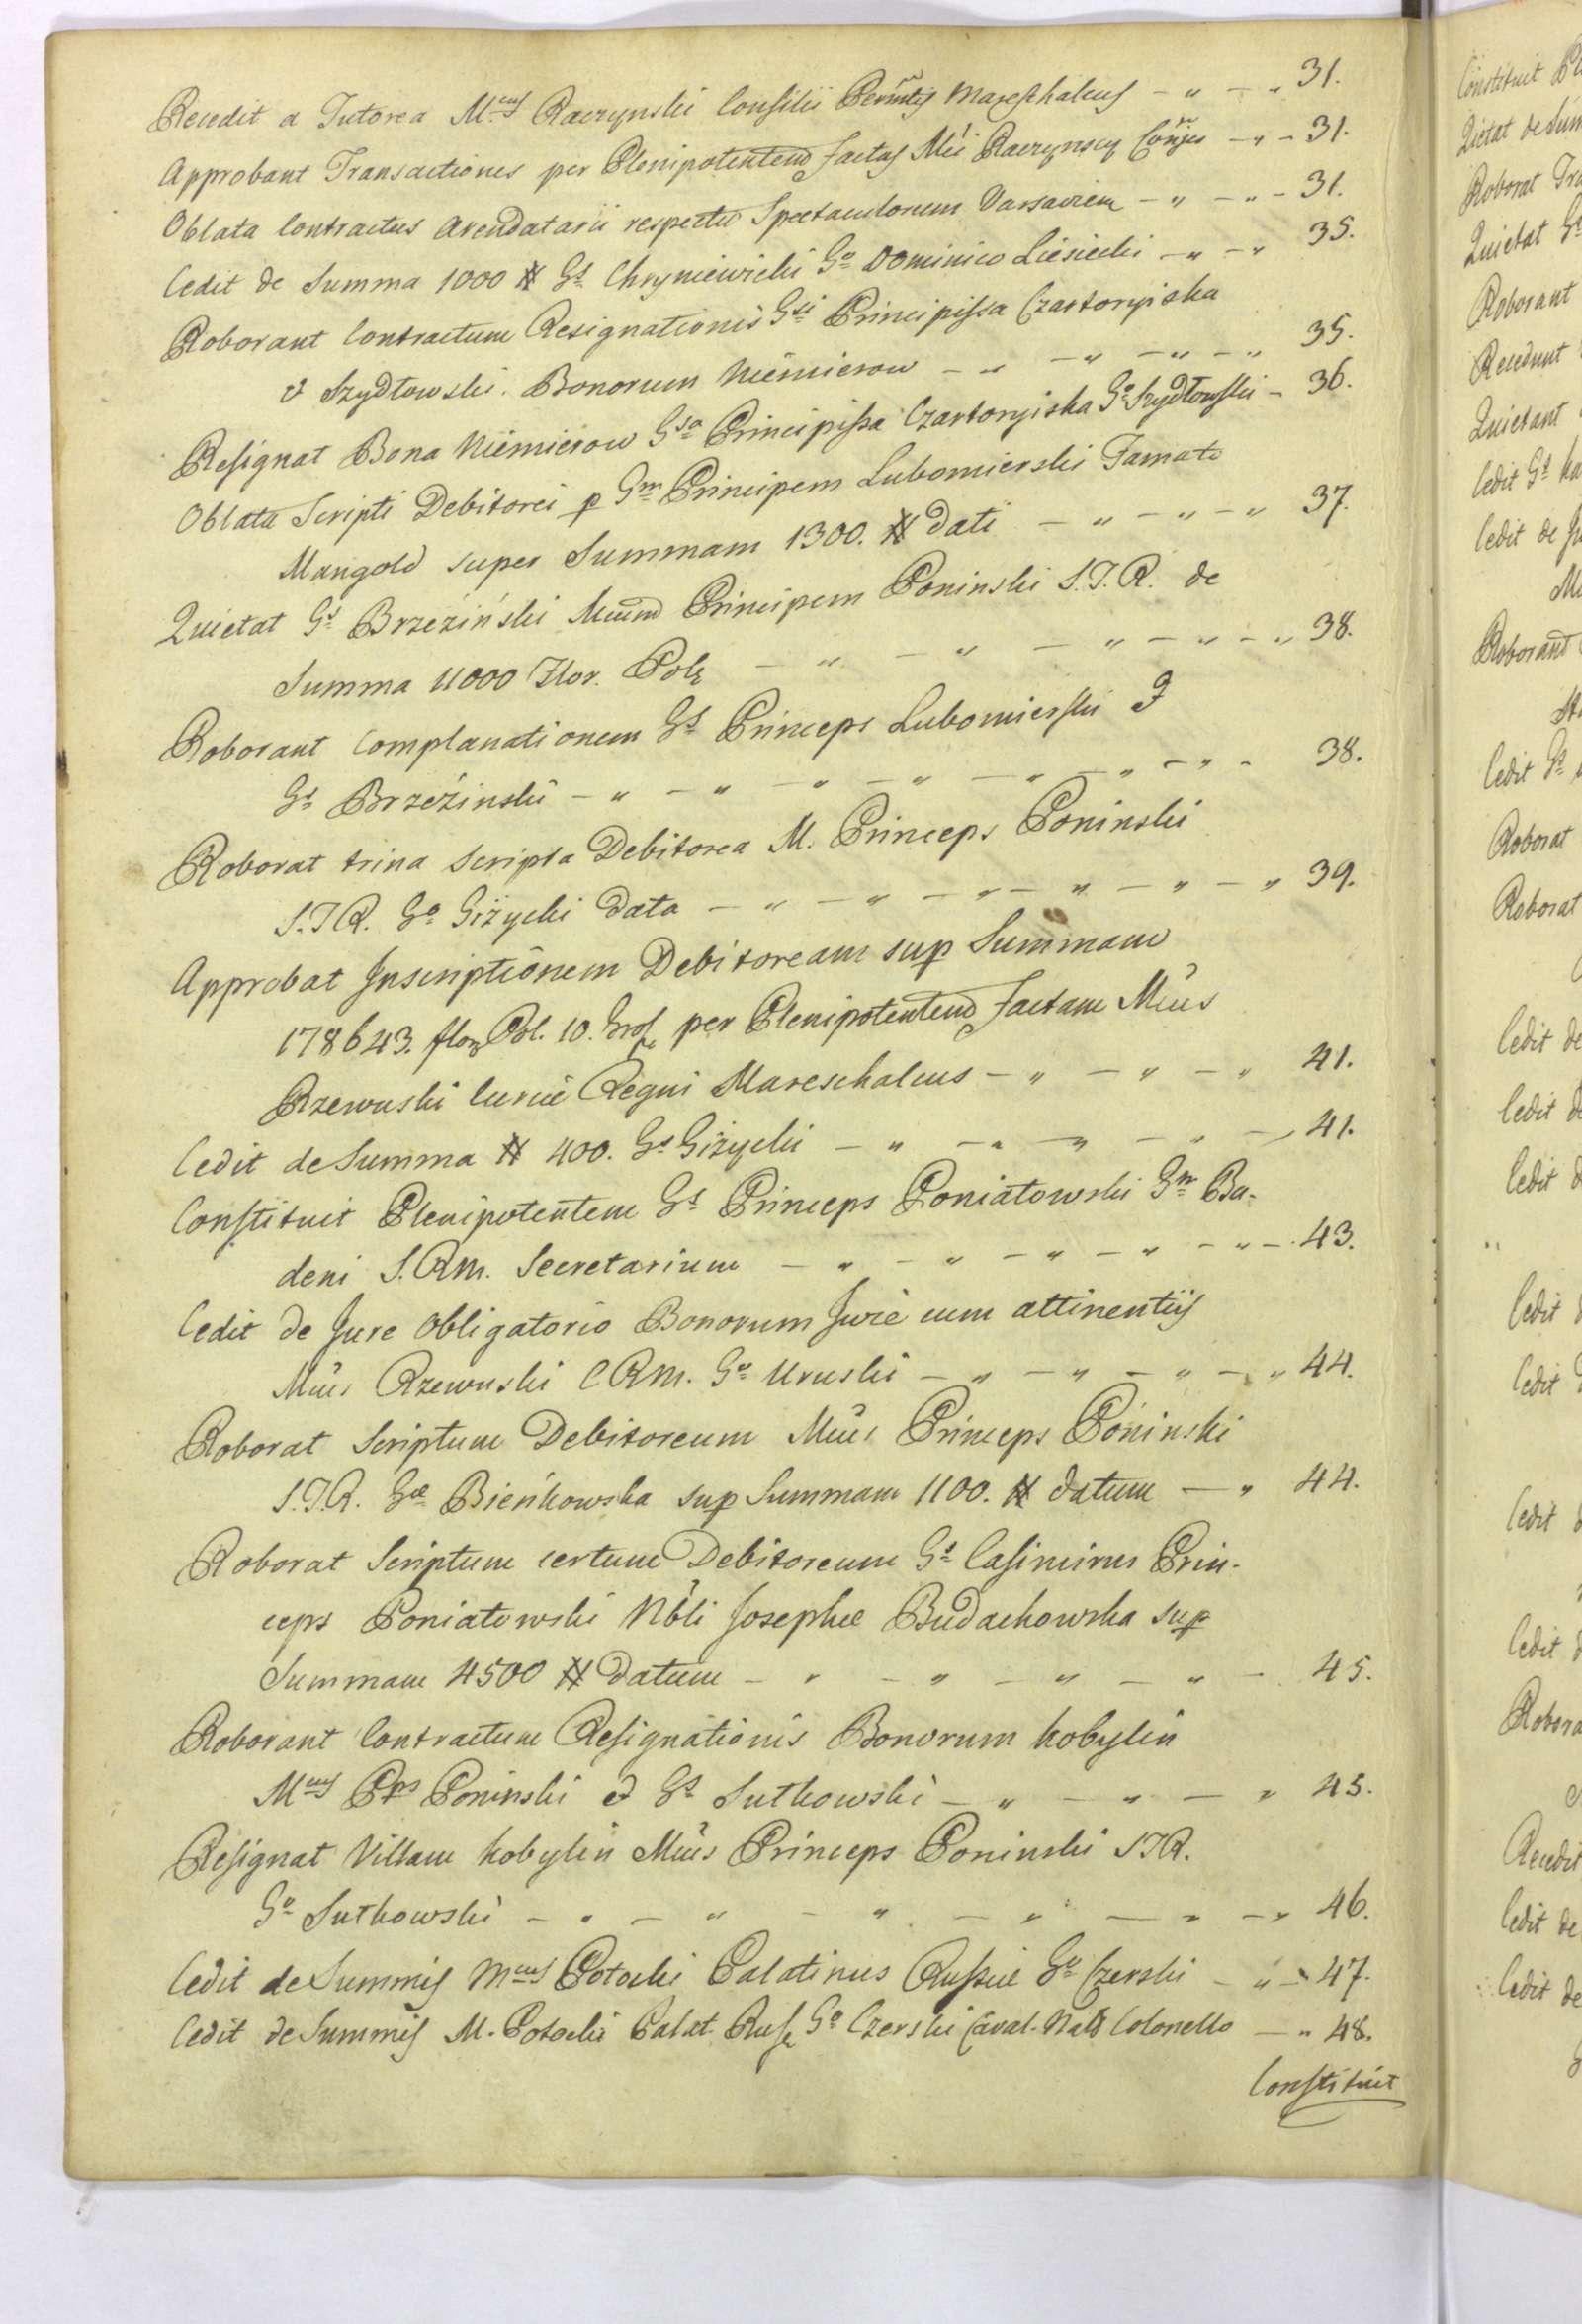 Recedit a Tutorea M.cus Raczynski Consilii Permntis Mareschalcus - " - " 31.
Approbant Transactiones per Plenipotentem factas Mci Raczynscy Conjes - " - 31.
Oblata Contractus Arendatarii respectu Spectaculorum Varsaviem - " - " - 31.
Cedit de Summa 1000 # Gs Chryniewicki Go Dominico Liesiecki - " - " 35.
Roborant Contractum Resignationis Gsi Principissa Czartoryiska
et Szydłowski. Bonorum Niemierow - " - " - " - " 35.
Resignat Bona Niemierow Gsa Principissa Czartoryiska Go Szydłowski - 36.
Oblata Scripti Debitorei p Gm Principem Lubomierski Famato
Mangold super Summam 1300. # dati - " - " - " 37.
Quietat Gs Brzeziński Mcum Principem Poninski S.T.R. de
Summa 11000 Flor. Pol. - " - " - " - " - " 38.
Roborant Complanationem Gs Princeps Lubomierski &
Gs Brzeźinski - " - " - " - " - " - " - " - 38.
Roborat trina scripta Debitorea M. Princeps Poninski
S.T.R. Go Giżycki data - " - " - " - " - " - " 39.
Approbat Inscriptionem Debitoream sup Summam
178643. flor Pol. 10. Gros. per Plenipotentem factam Mcus
Rzewuski Curiæ Regni Mareschalcus - " - " - " 41.
Cedit de Summa # 400. Gs Giżycki - " - " - " - " - 41.
Constituit Plenipotentem Gs Princeps Poniatowski Gm Ba-
deni S.R.M. Secretarium - " - " - " - " - " - 43.
Cedit de Jure obligatorio Bonorum Jurie cum attinentiis
Mcus Rzewuski C.R.M. Go Uruski - " - " - " - " 44.
Roborat Scriptum Debitoreum Mcus Princeps Póninski
S.T.R. Gæ Bieńkowska sup Summam 1100. # datum - " 44.
Roborat Scriptum certum Debitoreum Gs Casimirus Prin-
ceps Poniatowski Nbli Josephæ Budachowska sup
Summam 4500 # datum - " - " - " - " - 45.
Roborant Contractum Resignationis Bonorum Kobylin
Mcus Pps Poninski & Gs Sutkowski - " - " - " 45.
Resignat Villam Kobylin Mcus Princeps Poninski S.T.R.
Go Sutkowski - " - " - " - " - " - " 46.
Cedit de Summis Mcus Potocki Palatinus Russiæ Go Czerski - " - 47.
Cedit de Summis M. Potocki Palat. Rus. Go Czerski Caval. Nals Colonello - " 48.
Constituit